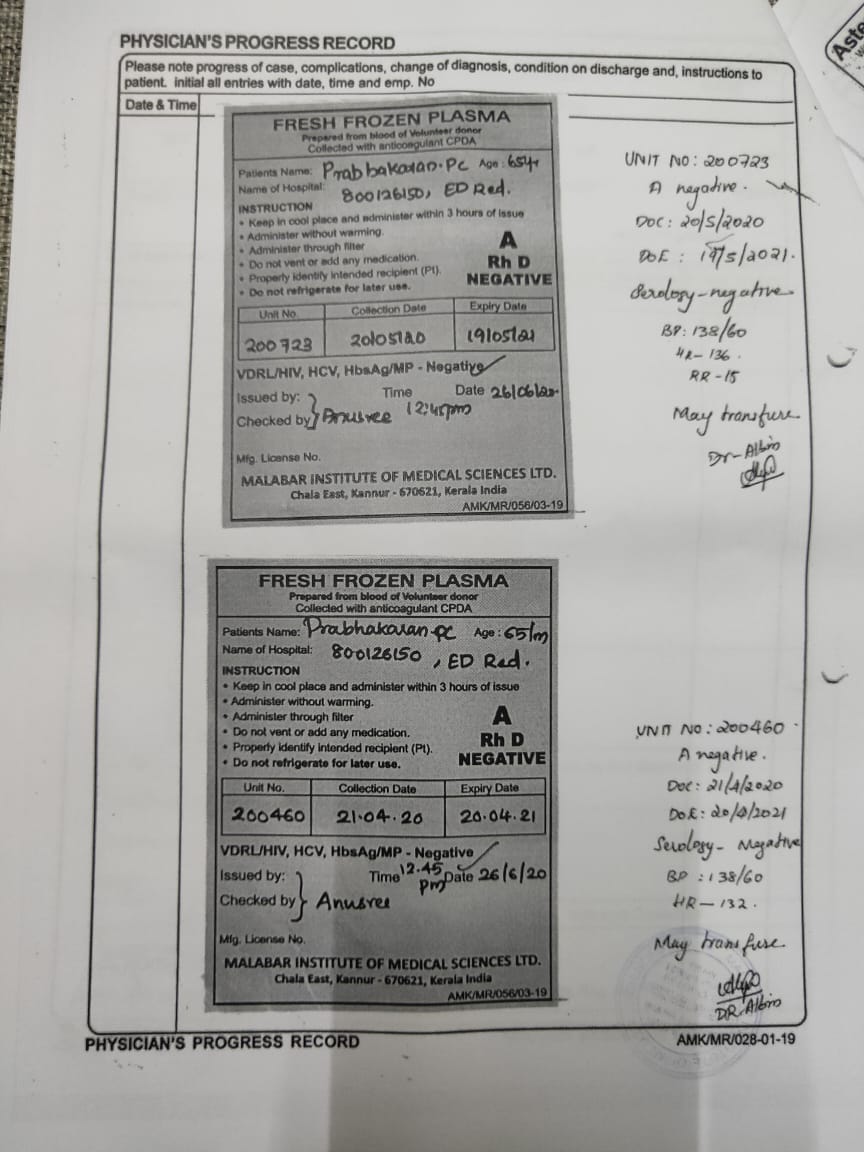 Aste
PHYSICIAN'S PROGRESS RECORD
Please note progress of case, complications, change of diagnosis, condition on discharge and, instructions to
patient. initial all entries with date, time and emp. No
Date & Time
FRESH FROZEN PLASMA
Prepared from blood of Volunteer donor
Collected with anticoagulant CPDA
Patients Name: Prabhakaran.PC Age: 65y
Name of Hospital: 800126150, ED Red.
INSTRUCTION
• Keep in cool place and administer within 3 hours of issue
• Administer without warming.
• Administer through filter
• Do not vent or add any medication.
• Properly identify intended recipient (Pt).
• Do not refrigerate for later use.
A
Rh D
NEGATIVE
Unit No. Collection Date Expiry Date
200723 20/05/20 19/05/21
VDRL/HIV, HCV, HbsAg/MP - Negative
Issued by: Time Date 26/06/20
Checked by Anusree 12:45pm
Mfg. License No.
MALABAR INSTITUTE OF MEDICAL SCIENCES LTD.
Chala East, Kannur - 670621, Kerala India
AMK/MR/056/03-19
UNIT NO: 200723
A negative.
DOC: 20/5/2020
DOE: 19/5/2021.
Serology-negative
BP: 138/60
HR-136.
RR-15
May transfuse
Dr-Albin
FRESH FROZEN PLASMA
Prepared from blood of Volunteer donor
Collected with anticoagulant CPDA
Patients Name: Prabhakaran.PC Age: 65/m
Name of Hospital: 800126150, ED Red.
INSTRUCTION
• Keep in cool place and administer within 3 hours of issue
• Administer without warming.
• Administer through filter
• Do not vent or add any medication.
• Properly identify intended recipient (Pt).
• Do not refrigerate for later use.
A
Rh D
NEGATIVE
Unit No. Collection Date Expiry Date
200460 21.04.20 20.04.21
VDRL/HIV, HCV, HbsAg/MP - Negative
Issued by: Time 12.45 pm Date 26/6/20
Checked by Anusree
Mfg. License No.
MALABAR INSTITUTE OF MEDICAL SCIENCES LTD.
Chala East, Kannur - 670621, Kerala India
AMK/MR/056/03-19
UNIT NO: 200460
A negative.
DOC: 21/4/2020
DOE: 20/4/2021
Serology- Negative
BP: 138/60
HR-132.
May transfuse
DR. Albin
PHYSICIAN'S PROGRESS RECORD
AMK/MR/028-01-19